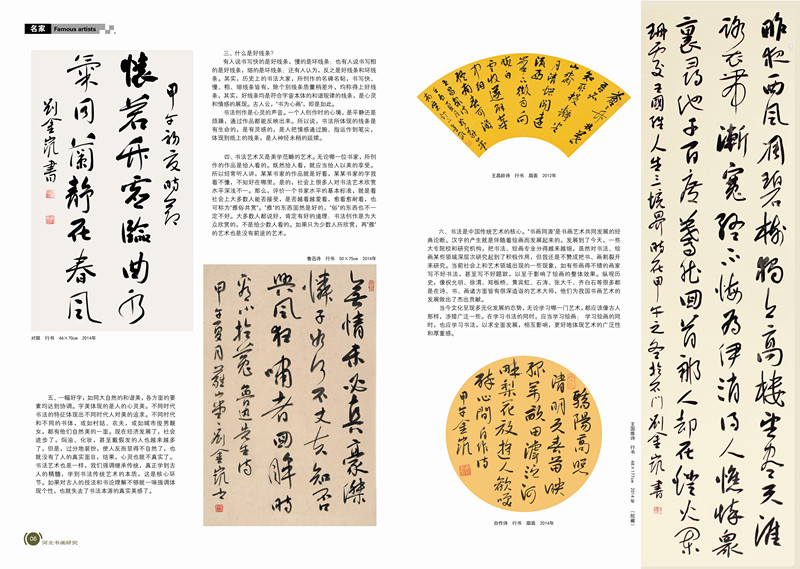 名家 Famous artists
甲午初夏時節
懷若竹虚臨曲水
氣同蘭静在春風
对联 行书 46×70cm 2014年
五、一幅好字，如同大自然的和谐美，各方面的要
素均达到协调。字美体现的是人的心灵美。不同时代
书法的特征体现出不同时代人对美的追求。不同时代
和不同的书体，或如村姑、农夫，或如城市俊男靓
女，都有他们自然美的一面。现在经济发展了，社会
进步了，焗油、化妆、甚至戴假发的人也越来越多
了。但是，过分地装扮，使人反而显得不自然了，也
就没有了人的真实面目。结果，心灵也就不真实了。
书法艺术也是一样，我们强调继承传统，真正学到古
人的精髓，学到书法传统艺术的本质，这是核心环
节。如果对古人的技法和书论理解不够就一味强调体
现个性，也就失去了书法本源的真实美感了。
06 河北书画研究
三、什么是好线条？
有人说写快的是好线条，慢的是坏线条；也有人说书写粗
的是好线条，细的是坏线条；还有人认为，反之是好线条和坏线
条。其实，历史上的书法大家，所创作的名碑名帖，书写快、
慢、粗、细线条皆有，除个别线条质量稍差外，均称得上好线
条。其实，好线条均是符合宇宙本体的和谐规律的线条，是心灵
和情感的展现。古人云，“书为心画”，即是如此。
书法创作是心灵的声音。一个人创作时的心境，是平静还是
烦躁，通过作品都能反映出来。所以说，书法所体现的线条是
有生命的，是有灵感的，是人把情感通过腕、指运作到笔尖，
体现到纸上的线条，是人神经末梢的延续。
四、书法艺术又是美学范畴的艺术。无论哪一位书家，所创
作的作品是给人看的。既然给人看，就应当给人以美的享受。
所以经常听人讲，某某书家的作品就是好看，某某书家的字我
看不懂，不知好在哪里。是的，社会上很多人对书法艺术欣赏
水平深浅不一。那么，评价一个书家水平的基本标准，就是看
社会上大多数人能否接受，是否越看越爱看，愈看愈耐看，也
可称为“雅俗共赏”。“雅”的东西固然是好的，“俗”的东西也不一
定不好。大多数人都说好，肯定有好的道理。书法创作是为大
众欣赏的，不是给少数人看的。如果只为少数人所欣赏，再“雅”
的艺术也是没有前途的艺术。
鲁迅诗 行书 50×75cm 2014年
無情未必真豪傑
憐子如何不丈夫知否
興風狂嘯者回眸時
看小於菟 鲁迅先生诗
王昌龄诗 行书 扇面 2012年
六、书法是中国传统艺术的核心。“书画同源”是书画艺术共同发展的经
典论断。汉字的产生就是伴随着绘画而发展起来的。发展到了今天，一些
大专院校和研究机构，把书法、绘画专业分得越来越细，虽然对书法、绘
画某些领域深层次研究起到了积极作用，但我还是不赞成把书、画割裂开
来研究。当前社会上和艺术领域出现的一些现象，如有些画得不错的画家
写不好书法，甚至写不好题款，以至于影响了绘画的整体效果。纵观历
史，像祝允明、徐渭、郑板桥、黄宾虹、石涛、张大千、齐白石等很多都
是在诗、书、画诸方面皆有很深造诣的艺术大师，他们为我国书画艺术的
发展做出了杰出贡献。
当今文化呈现多元化发展的态势，无论学习哪一门艺术，都应该像古人
那样，涉猎广泛一些。在学习书法的同时，应当学习绘画；学习绘画的同
时，也应学习书法，以求全面发展，相互影响，更好地体现艺术的广泛性
和厚重感。
自作诗 行书 扇面 2014年
昨夜西风凋碧树独上高楼望尽天涯
路衣带渐寬终不悔为伊消得人憔悴衆
裏尋他千百度蓦然回首那人却在燈火阑
珊處王國维人生三境界时在甲午之冬於石门
王国维诗 行书
2014年